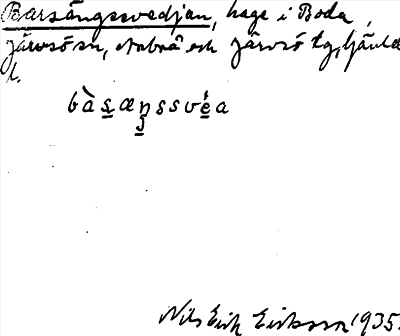 Barsängssvedjan, hage i Boda,
Järvsö sn, Arbrå och Järvsö tg, Gävleb.
l.
bàsæŋssvéa
Nils Erik Eriksson 1935.